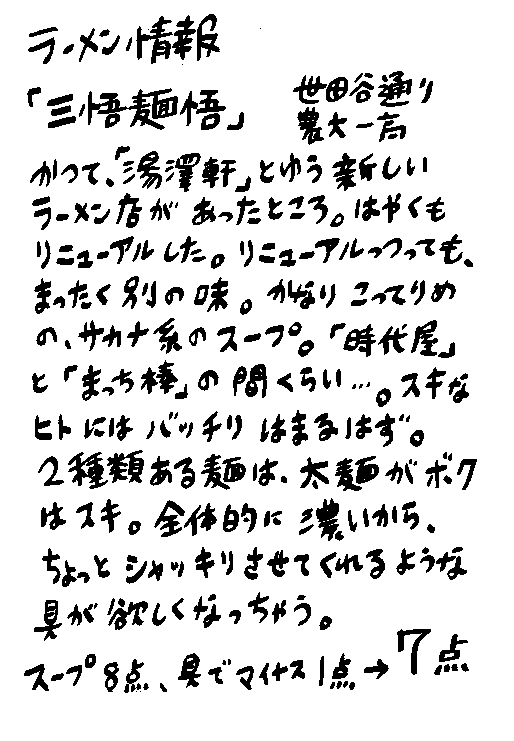 ラーメン情報
「三悟麺悟」 世田谷通り
農大一高
かつて、「湯澤軒」とゆう新しい
ラーメン店があったところ。はやくも
リニューアルした。リニューアルっつっても、
まったく別の味。かなりこってりめ
の、サカナ系のスープ。「時代屋」
と「まっち棒」の間くらい…。スキな
ヒトにはバッチリはまるはず。
2種類ある麺は、太麺がボク
はスキ。全体的に濃いから、
ちょっとシャッキリさせてくれるような
具が欲しくなっちゃう。
スープ8点、具でマイナス1点→7点